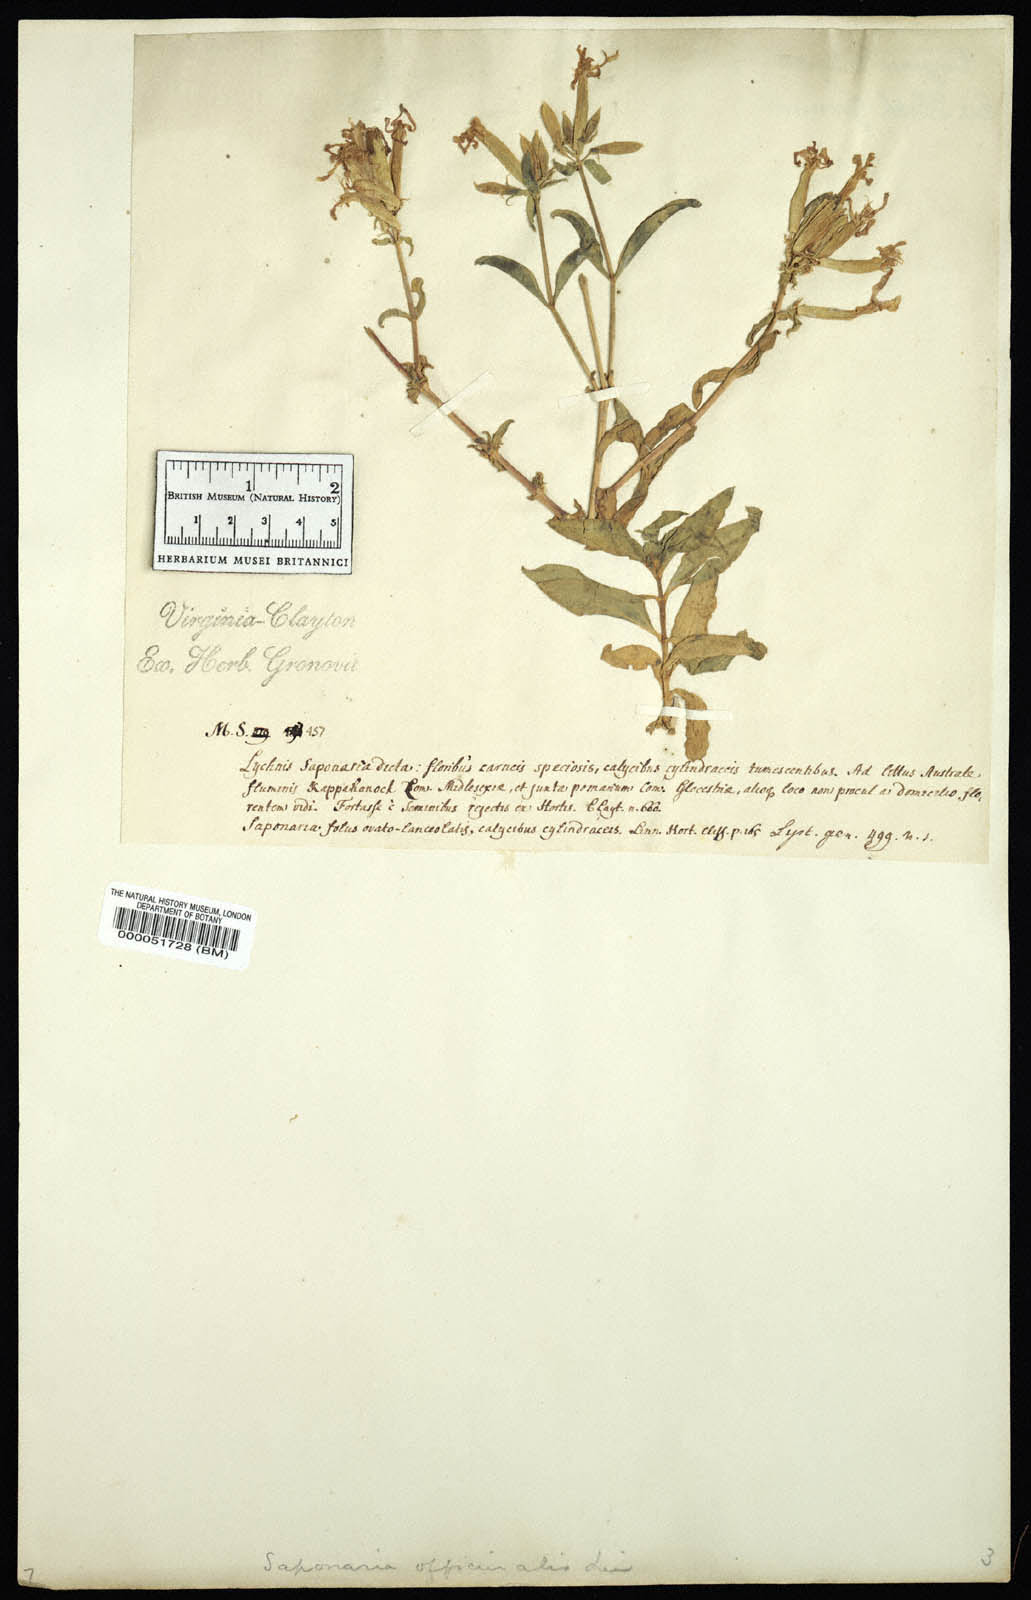 1 2
BRITISH MUSEUM (NATURAL HISTORY)
1 2 3 4 5
HERBARIUM MUSEI BRITANNICI
Virginia-Clayton
Ex. Herb. Gronovii
M. S. 457
Lychnis Saponaria dicta: floribus carneis speciosis, calycibus cylindraceis tumescentibus. Ad littus Australe
fluminis Rappahanock Com. Midlesexiae, et juxta pomarium Com. Glocestriae, alioq. loco non procul a domicilio, flo-
rentem vidi. Fortasse è Seminibus rejectis ex Hortis. Clayt. n. 660.
Saponaria foliis ovato-lanceolatis, calycibus cylindraceis. Linn. Hort. Cliff. p. 165 Syst. gen. 499. n. 1.
THE NATURAL HISTORY MUSEUM, LONDON
DEPARTMENT OF BOTANY
000051728 (BM)
Saponaria officinalis Lin
3
7